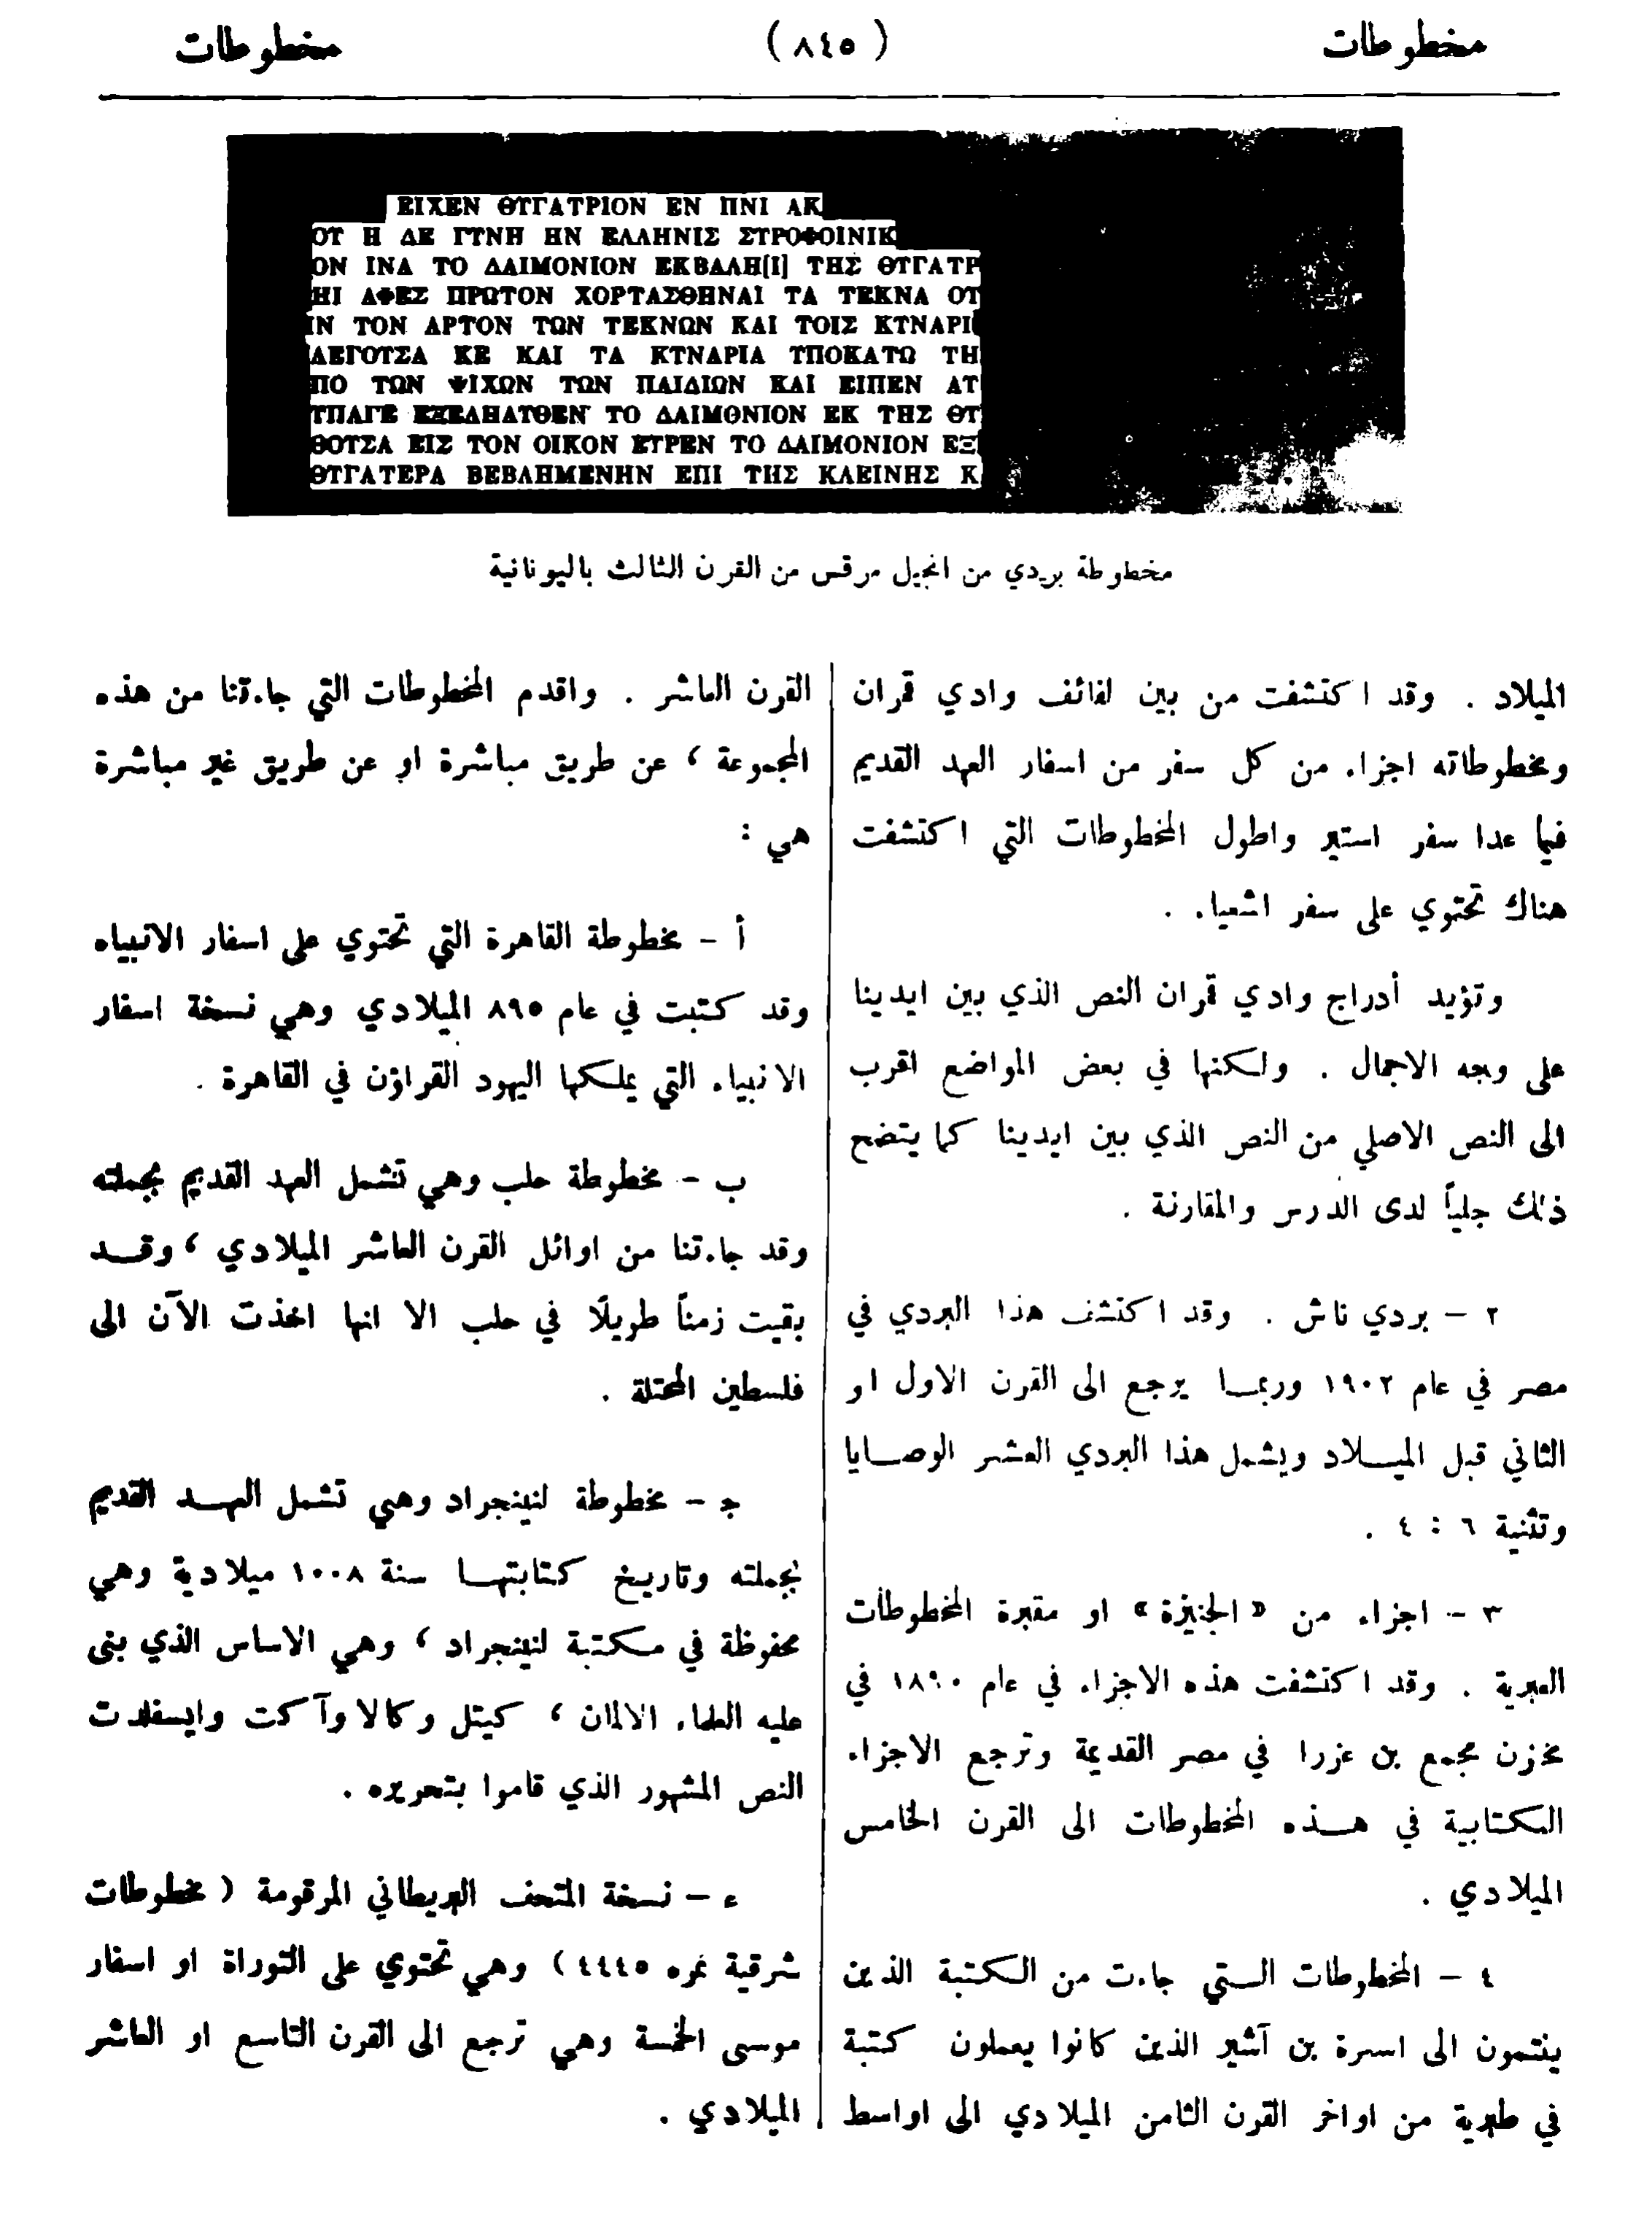 مخطوطات
( ٨٤٥ )
مخطوطات
ΕΙΧΕΝ ΘΥΓΑΤΡΙΟΝ ΕΝ ΠΝΙ ΑΚ
ΟΥ Η ΔΕ ΓΥΝΗ ΗΝ ΕΛΛΗΝΙΣ ΣΥΡΟΦΟΙΝΙΚ
ΟΝ ΙΝΑ ΤΟ ΔΑΙΜΟΝΙΟΝ ΕΚΒΑΛΗ[Ι] ΤΗΣ ΘΥΓΑΤΡ
ΗΙ ΑΦΕΣ ΠΡΩΤΟΝ ΧΟΡΤΑΣΘΗΝΑΙ ΤΑ ΤΕΚΝΑ ΟΥ
ΙΝ ΤΟΝ ΑΡΤΟΝ ΤΩΝ ΤΕΚΝΩΝ ΚΑΙ ΤΟΙΣ ΚΥΝΑΡΙ
ΛΕΓΟΥΣΑ ΚΕ ΚΑΙ ΤΑ ΚΥΝΑΡΙΑ ΥΠΟΚΑΤΩ ΤΗ
ΠΟ ΤΩΝ ΨΙΧΩΝ ΤΩΝ ΠΑΙΔΙΩΝ ΚΑΙ ΕΙΠΕΝ ΑΥ
ΥΠΑΓΕ ΕΞΕΛΗΛΥΘΕΝ ΤΟ ΔΑΙΜΟΝΙΟΝ ΕΚ ΤΗΣ ΘΥ
ΘΟΥΣΑ ΕΙΣ ΤΟΝ ΟΙΚΟΝ ΕΥΡΕΝ ΤΟ ΔΑΙΜΟΝΙΟΝ ΕΞ
ΘΥΓΑΤΕΡΑ ΒΕΒΛΗΜΕΝΗΝ ΕΠΙ ΤΗΣ ΚΛΕΙΝΗΣ Κ
مخطوطة بردي من انجيل مرقس من القرن الثالث باليونانية
الميلاد . وقد اكتشفت من بين لفائف وادي قمران
ومخطوطاته اجزاء من كل سفر من اسفار العهد القديم
فيما عدا سفر استير واطول المخطوطات التي اكتشفت
هناك تحتوي على سفر اشعياء .
وتؤيد أدراج وادي قمران النص الذي بين ايدينا
على وجه الاجمال . ولكنها في بعض المواضع اقرب
الى النص الاصلي من النص الذي بين ايدينا كما يتضح
ذلك جلياً لدى الدرس والمقارنة .
٢ - بردي ناش . وقد اكتشف هذا البردي في
مصر في عام ١٩٠٢ وربما يرجع الى القرن الاول او
الثاني قبل الميلاد ويشمل هذا البردي العشر الوصايا
وتثنية ٦ : ٤ .
٣ - اجزاء من «الجنيزة» او مقبرة المخطوطات
العبرية . وقد اكتشفت هذه الاجزاء في عام ١٨٩٠ في
مخزن مجمع بن عزرا في مصر القديمة وترجع الاجزاء
الكتابية في هذه المخطوطات الى القرن الخامس
الميلادي .
٤ - المخطوطات التي جاءت من الكتبة الذين
ينتمون الى اسرة بن آشير الذين كانوا يعملون كتبة
في طبرية من اواخر القرن الثامن الميلادي الى اواسط
القرن العاشر . واقدم المخطوطات التي جاءتنا من هذه
المجموعة ، عن طريق مباشرة او عن طريق غير مباشرة
هي :
أ - مخطوطة القاهرة التي تحتوي على اسفار الانبياء
وقد كتبت في عام ٨٩٥ الميلادي وهي نسخة اسفار
الانبياء التي يملكها اليهود القراؤن في القاهرة .
ب - مخطوطة حلب وهي تشمل العهد القديم بجملته
وقد جاءتنا من اوائل القرن العاشر الميلادي ، وقد
بقيت زمناً طويلًا في حلب الا انها اخذت الآن الى
فلسطين المحتلة .
ج - مخطوطة لنينجراد وهي تشمل العهد القديم
بجملته وتاريخ كتابتها سنة ١٠٠٨ ميلادية وهي
محفوظة في مكتبة لنينجراد ، وهي الاساس الذي بنى
عليه العلماء الالمان ، كيتل وكالا وآكت وايسفلدت
النص المشهور الذي قاموا بتحريره .
ء - نسخة المتحف البريطاني المرقومة ( مخطوطات
شرقية نمره ٤٤٤٥ ) وهي تحتوي على التوراة او اسفار
موسى الخمسة وهي ترجع الى القرن التاسع او العاشر
الميلادي .